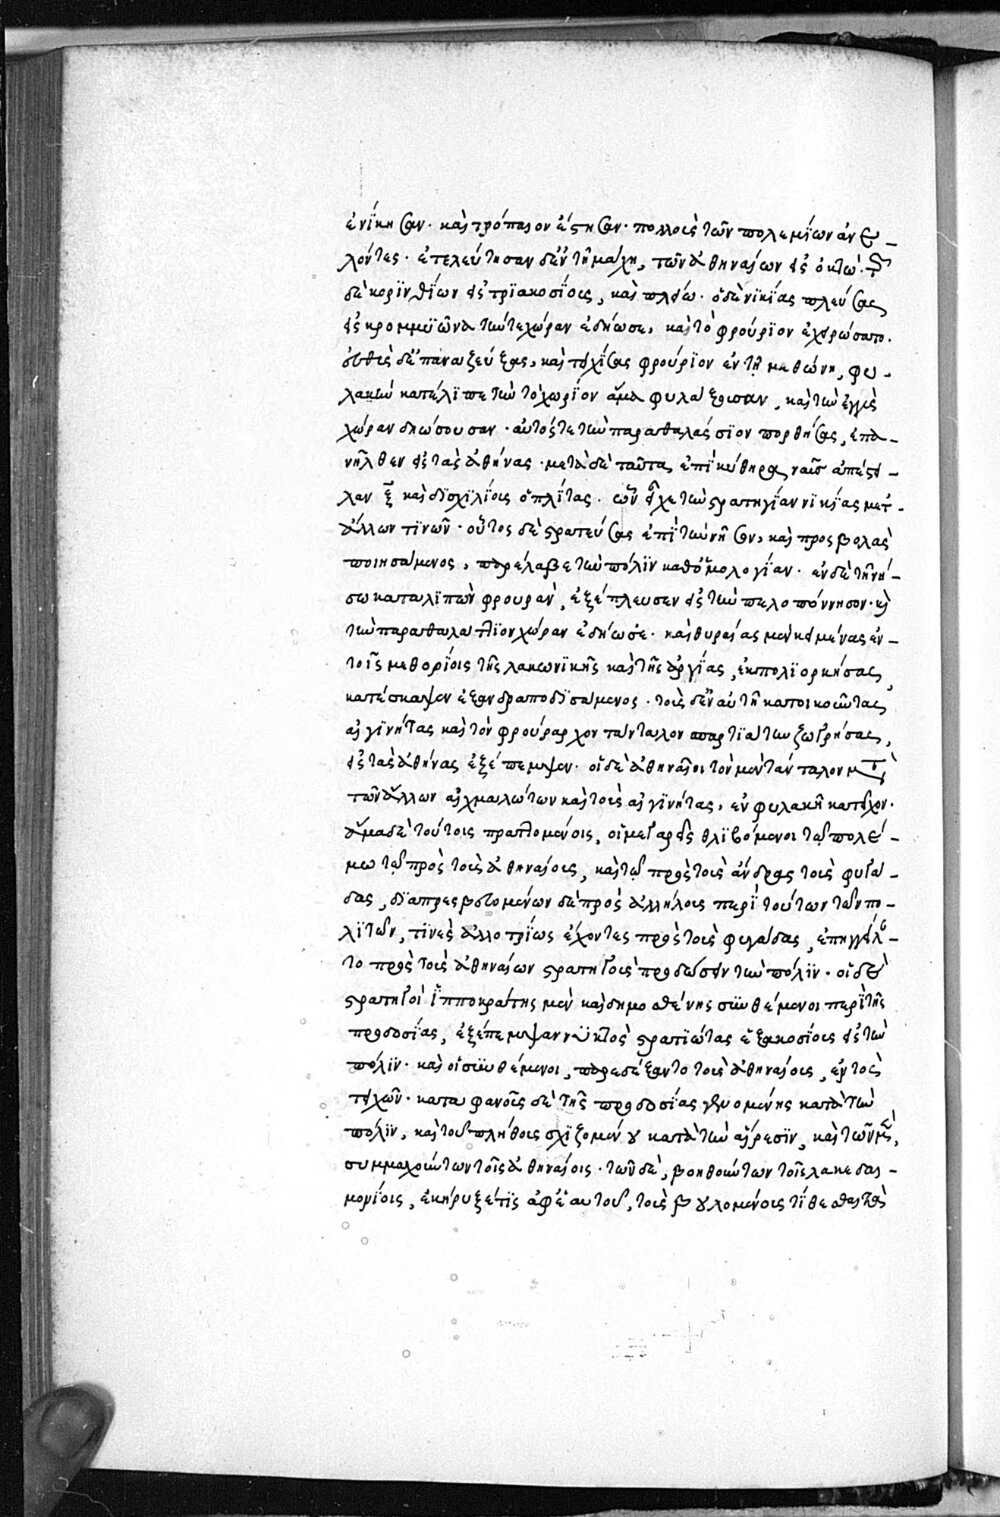 ἐνίκησαν· καὶ τρόπαιον ἔστησαν· πολλοὺς τῶν πολεμίων ἀνε-
λόντες· ἐτελεύτησαν δ' ἐν τῇ μάχῃ, τῶν ἀθηναίων εἰς ὀκτώ· τῶν
δὲ κορινθίων εἰς τριακοσίους, καὶ πλείω· ὁ δὲ νικίας πλεύσας
εἰς κρομμϋῶνα τήν τε χώραν ἐδήωσε, καὶ τὸ φρούριον ἐχειρώσατο·
εὐθὺς δ' ἐπαναζεύξας, καὶ τειχίσας φρούριον ἐν τῇ μεθώνῃ, φυ-
λακὴν κατέλιπε τὴν τὸ χωρίον ἅμα φυλάξουσαν, καὶ τὴν ἐγγὺς
χώραν δηώσουσαν· αὐτός τε τὴν παραθαλάσσιον πορθήσας, ἐπα-
νῆλθεν εἰς τὰς ἀθήνας· μετὰ δὲ ταῦτα, ἐπὶ κύθηρα ναῦς ἀπέστει-
λαν ξ καὶ δισχιλίους ὁπλίτας· ὧν εἶχε τὴν στρατηγίαν νικίας μετ'
ἄλλων τινῶν· οὗτος δὲ στρατεύσας ἐπὶ τὴν νῆσον, καὶ προσβολὰς
ποιησάμενος, παρέλαβε τὴν πόλιν καθ' ὁμολογίαν· ἐν δὲ τῇ νή-
σω καταλιπὼν φρουρὰν, ἐξέπλευσεν εἰς τὴν πελοπόννησον· καὶ
τὴν παραθαλαττίον χώραν ἐδήωσε· καὶ θυρέας μὲν κειμένας ἐν
τοῖς μεθορίοις τῆς λακωνικῆς καὶ τῆς ἀργείας, ἐκπολιορκήσας,
κατέσκαψεν ἐξανδραποδισάμενος· τοὺς δ' ἐν αὐτῇ κατοικοῦντας
αἰγινήτας καὶ τὸν φρούραρχον τάνταλον σπαρτιάτην ζωγρήσας,
εἰς τὰς ἀθήνας ἐξέπεμψεν· οἱ δὲ ἀθηναῖοι τὸν μὲν τάνταλον μετὰ
τῶν ἄλλων αἰχμαλώτων καὶ τοὺς αἰγινήτας, ἐν φυλακῇ κατεῖχον·
ἅμα δὲ τούτοις πραττομένοις, οἱ μεγαρεῖς θλιβόμενοι τῷ πολέ-
μω τῷ πρὸς τοὺς ἀθηναίους, καὶ τῷ πρὸς τοὺς ἄνδρας τοὺς φυγά-
δας, διαπρεσβευομένων δὲ πρὸς ἀλλήλους περὶ τούτων τῶν πο-
λιτῶν, τινὲς ἀλλοτρίως ἔχοντες πρὸς τοὺς φυγάδας, ἐπηγγείλαν-
το πρὸς τοὺς ἀθηναίων στρατηγοὺς προδώσειν τὴν πόλιν· οἱ δὲ
στρατηγοὶ ἱπποκράτης μὲν καὶ δημοσθένης συνθέμενοι περὶ τῆς
προδοσίας, ἐξέπεμψαν νυκτὸς στρατιώτας ἑξακοσίους εἰς τὴν
πόλιν· καὶ οἱ συνθέμενοι, παρεδέξαντο τοὺς ἀθηναίους, ἐντὸς
τειχῶν· καταφανοῦς δὲ τῆς προδοσίας γενομένης κατὰ τὴν
πόλιν, καὶ τοῦ πλήθους σχιζομένου κατὰ τὴν αἵρεσιν, καὶ τῶν μὲν,
συμμαχούντων τοῖς ἀθηναίοις· τῶν δὲ, βοηθούντων τοῖς λακεδαι-
μονίοις, ἐκήρυξέ τις ἀφ' ἑαυτοῦ, τοὺς βουλομένους τίθεσθαι τὰ